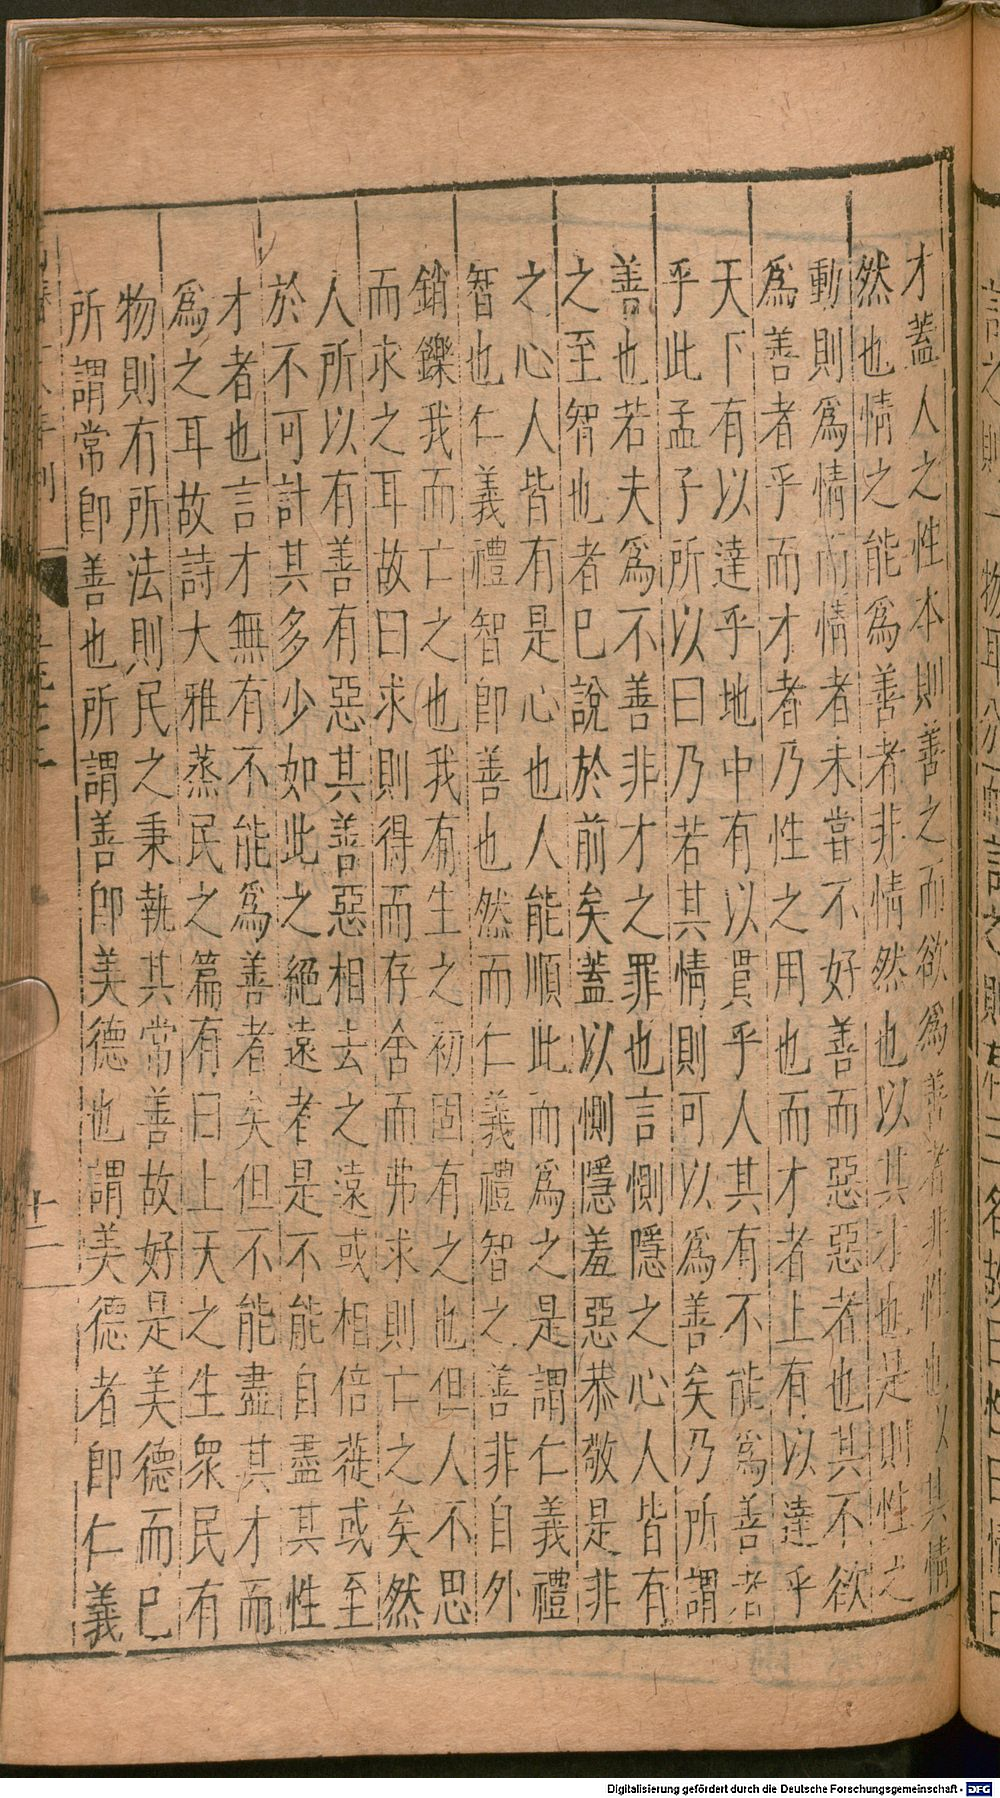 才蓋人之性本則善之而欲爲善者非性也以其情
然也情之能爲善者非情然也以其才也是則性之
動則爲情而情者未嘗不好善而惡惡者也其不欲
爲善者乎而才者乃性之用也而才者上有以達乎
天下有以達乎地中有以貫乎人其有不能爲善者
乎此孟子所以曰乃若其情則可以爲善矣乃所謂
善也若夫爲不善非才之罪也言惻隱之心人皆有
之至智也者巳說於前矣蓋以惻隱羞惡恭敬是非
之心人皆有是心也人能順此而爲之是謂仁義禮
智也仁義禮智卽善也然而仁義禮智之善非自外
銷鑠我而亡之也我有生之初固有之也但人不思
而求之耳故曰求則得而存舍而弗求則亡之矣然
人所以有善有惡其善惡相去之遠或相倍蓰或至
於不可計其多少如此之絕遠者是不能自盡其性
才者也言才無有不能爲善者矣但不能盡其才而
爲之耳故詩大雅蒸民之篇有曰上天之生眾民有
物則有所法則民之秉執其常善故好是美德而巳
所謂常卽善也所謂善卽美德也謂美德者卽仁義
十二
Digitalisierung gefördert durch die Deutsche Forschungsgemeinschaft - DFG